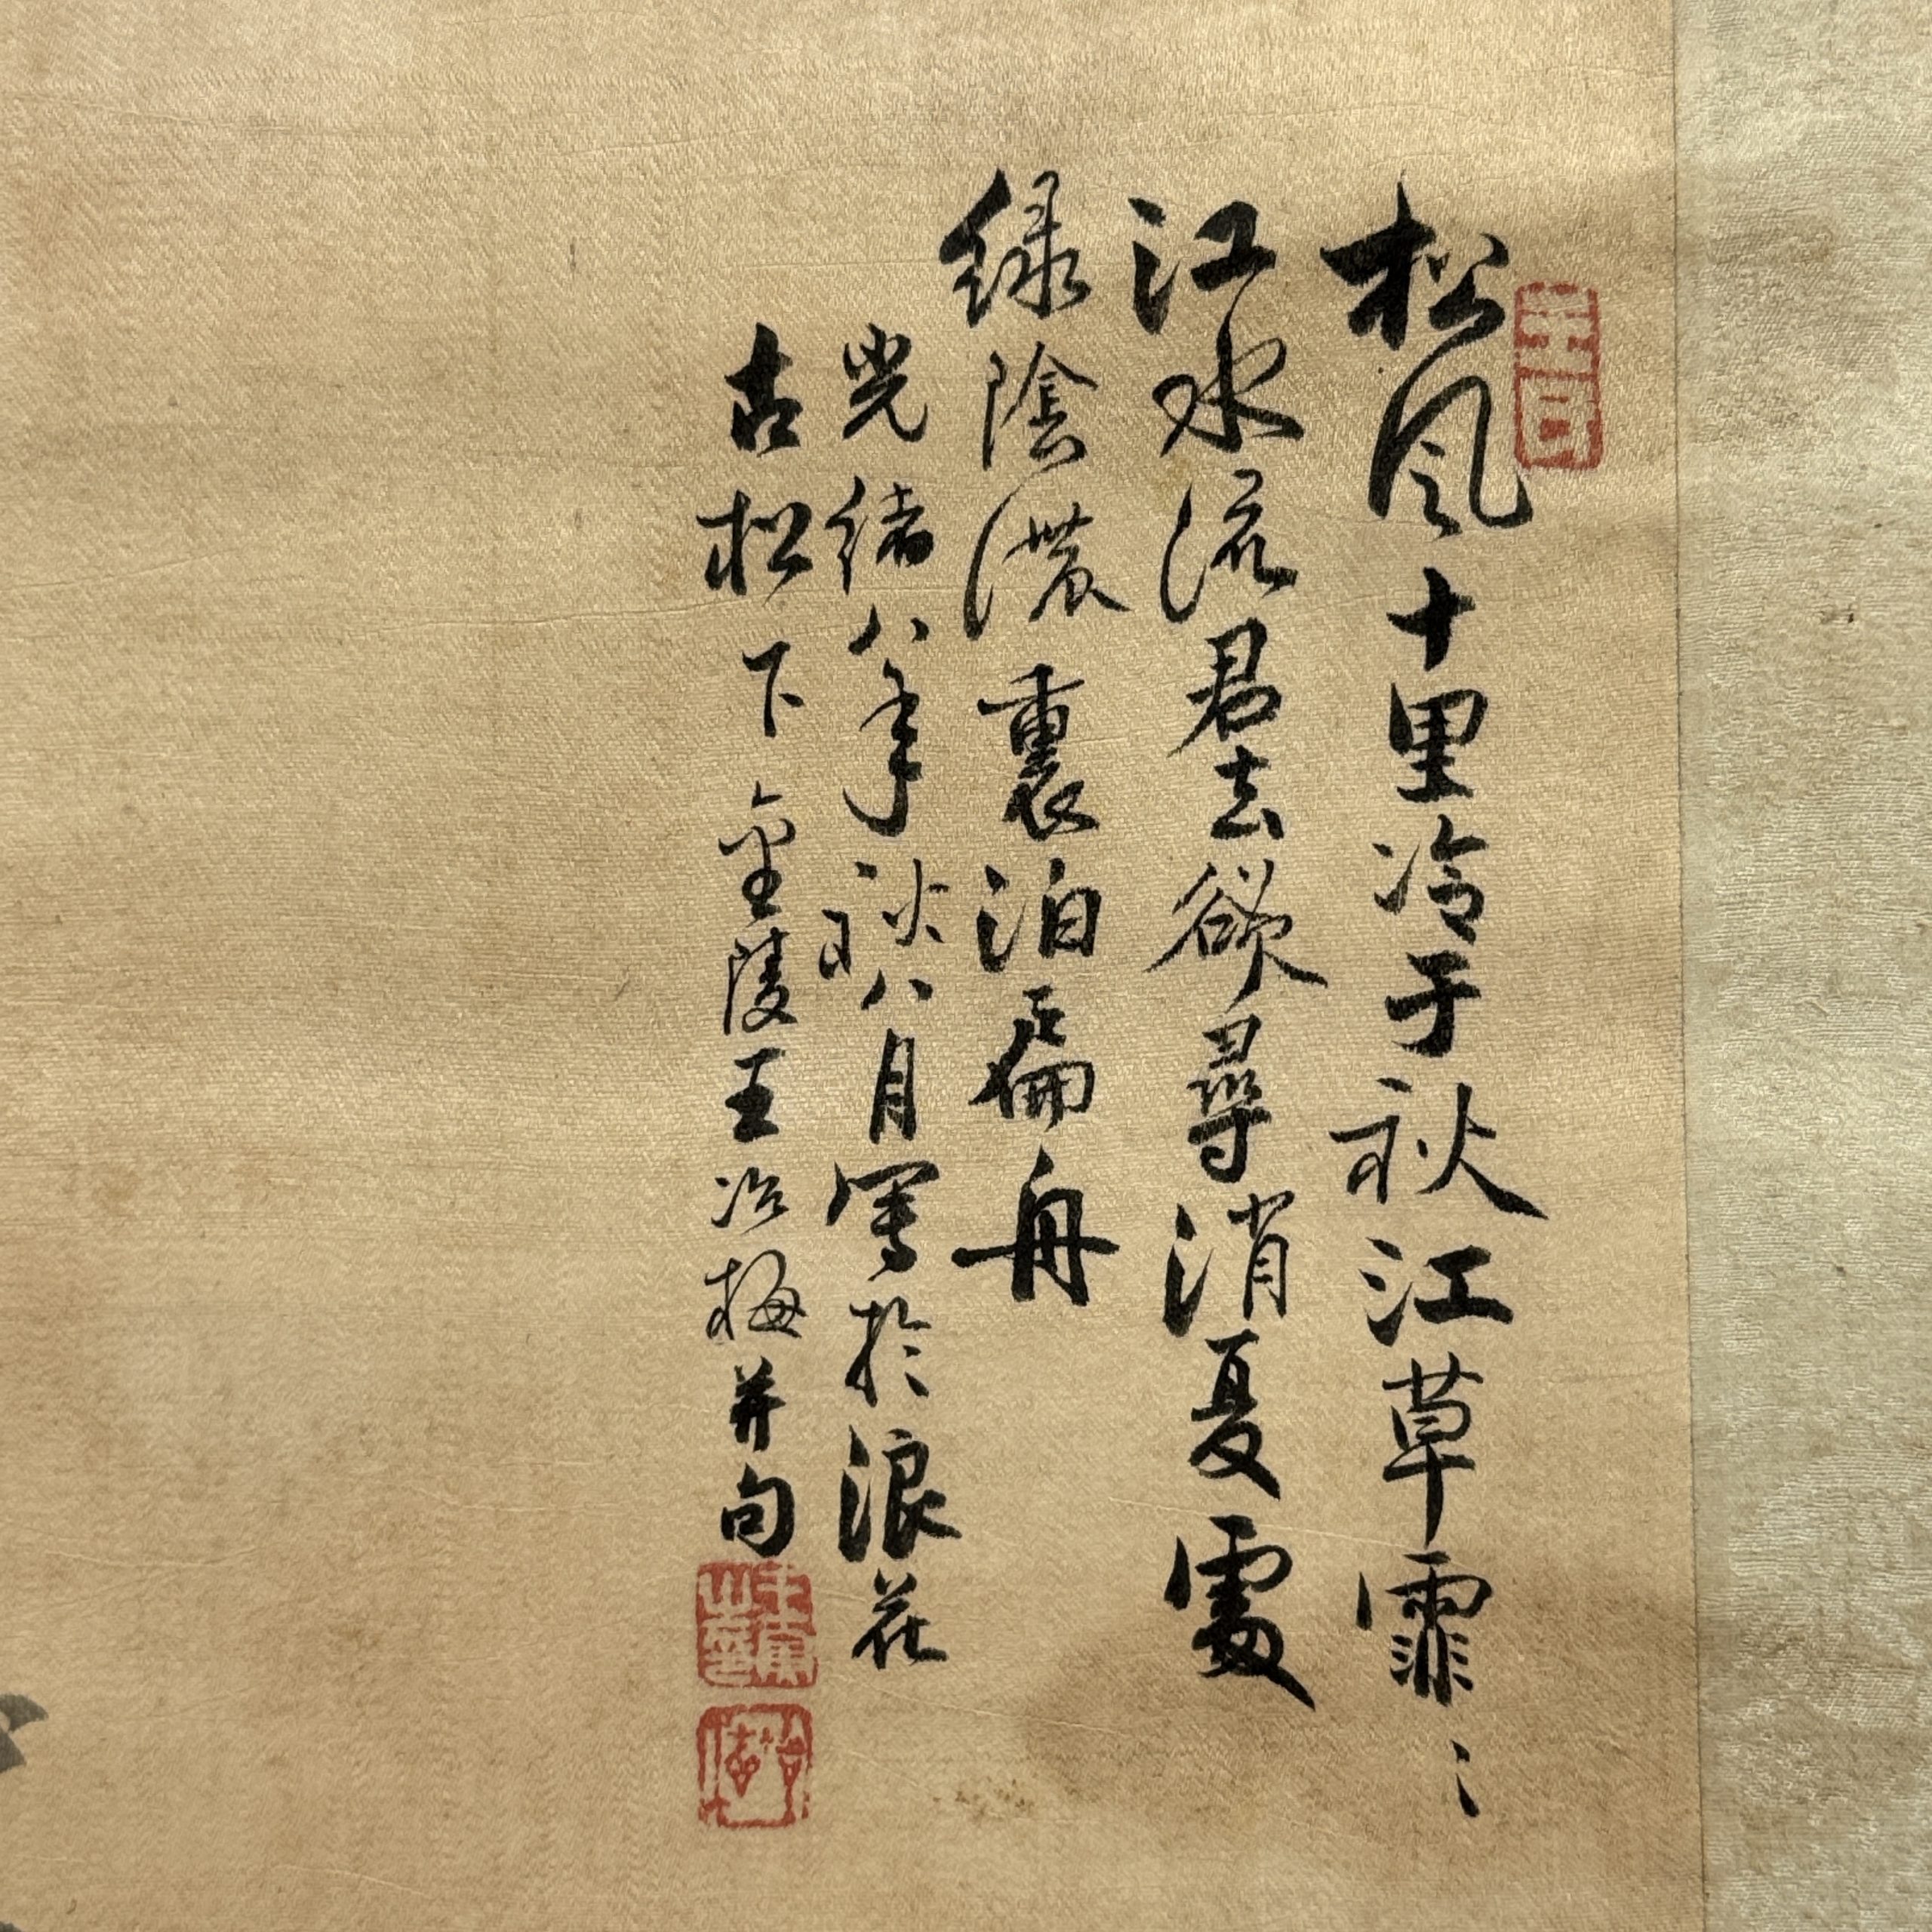 松风十里冷于秋江草霏〻
江水流君去欲尋消夏處
緑陰濃裏泊扁舟
光緒八年秋八月寫於浪花
古松下金陵王冶梅并句
王寅